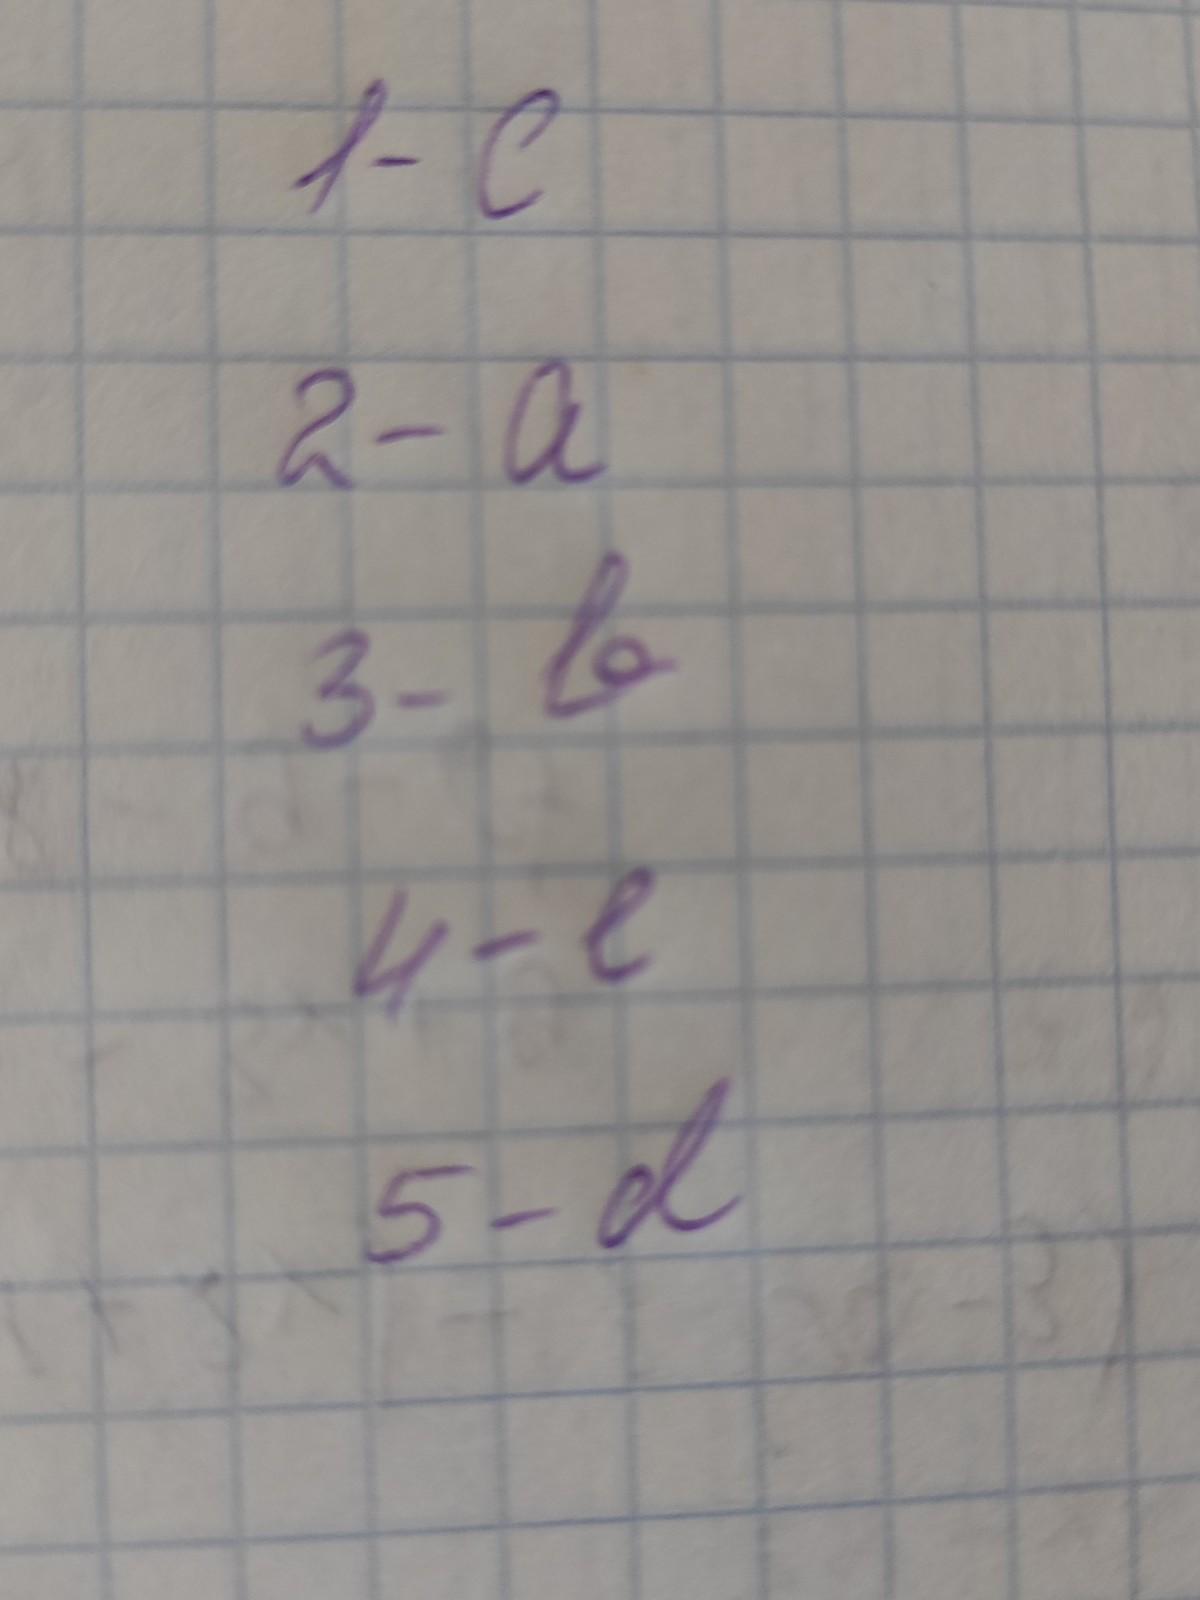 1- c
2- a
3- b
4- e
5- d